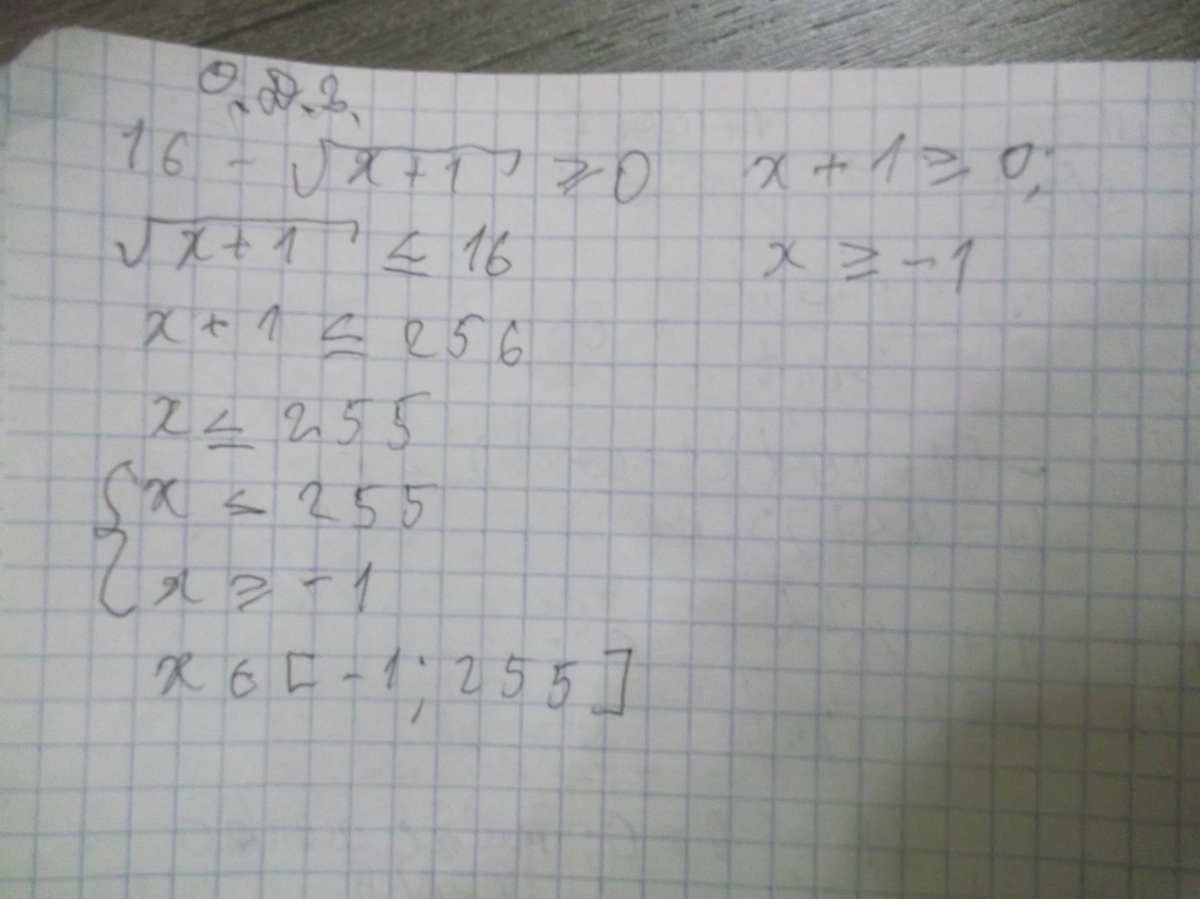 О.Д.З.
16 - √(x+1) ≥ 0    x + 1 ≥ 0;
√(x+1) ≤ 16    x ≥ -1
x + 1 ≤ 256
x ≤ 255
{ x < 255
{ x ≥ -1
x ∈ [-1; 255]